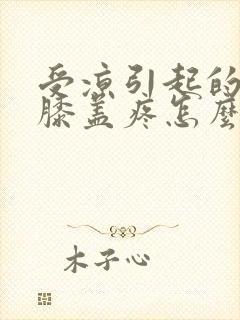 受凉引起的
膝盖疼怎麽
木子心